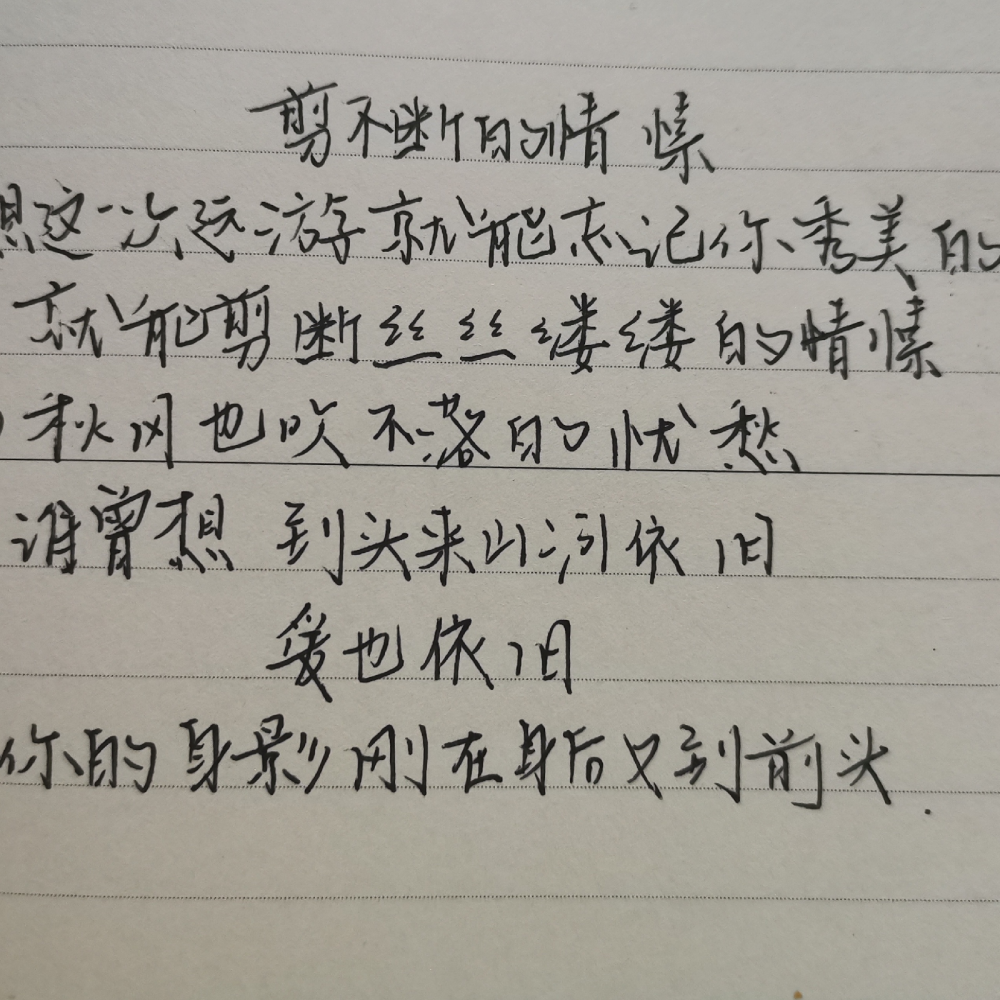 剪不断的情愫
想这一次远游就能忘记你秀美的
就能剪断丝丝缕缕的情愫
秋风也吹不落的忧愁
谁曾想到头来山河依旧
爱也依旧
你的身影刚在身后又到前头.